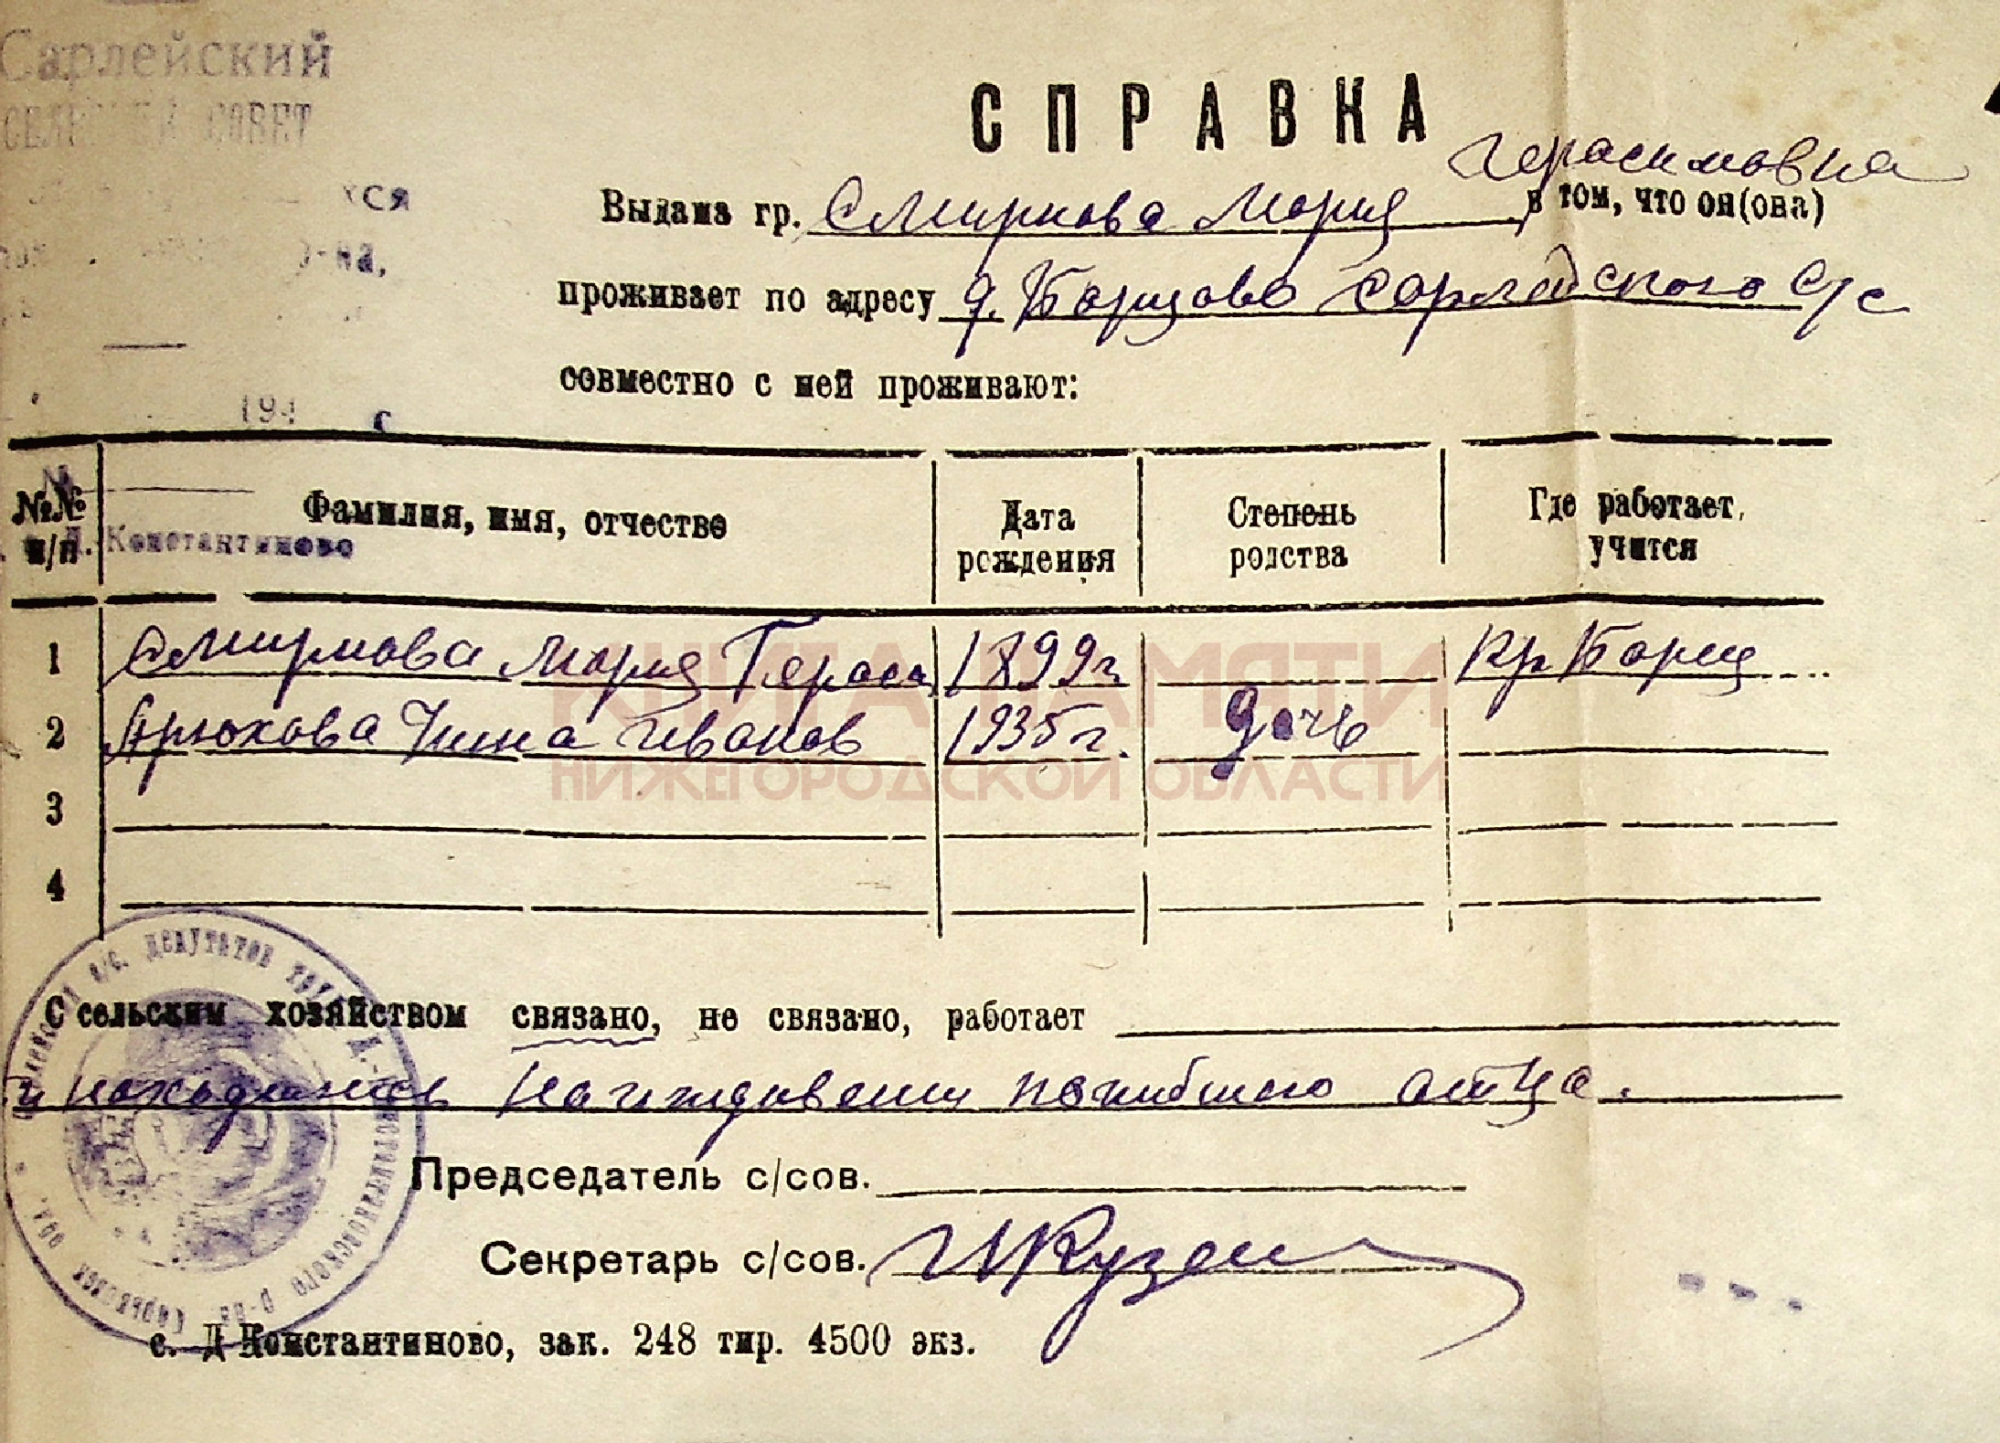 Сарлейский
СЕЛ СОВЕТ
хся
р-на,
194 г
СПРАВКА
Герасимовна
Выдана гр. Смирнова Мария в том, что он(она)
проживает по адресу д. Борцово Сарлейского с/с
совместно с ней проживают:
№№ п/п
Фамилия, имя, отчество
Дата рождения
Степень родства
Где работает, учится
Д.-Константиново
1 Смирнова Мария Гераси 1899 г.
2 Арюкова Нина Иванов 1935 г. дочь
3
4
КНИГА ПАМЯТИ
НИЖЕГОРОДСКОЙ ОБЛАСТИ
С сельским хозяйством связано, не связано, работает
и находились на иждивении погибшего отца.
Председатель с/сов.
Секретарь с/сов.
с. Д Константиново, зак. 248 тир. 4500 экз.
депутатов Д.-Константиновского р-на Горьковской обл.